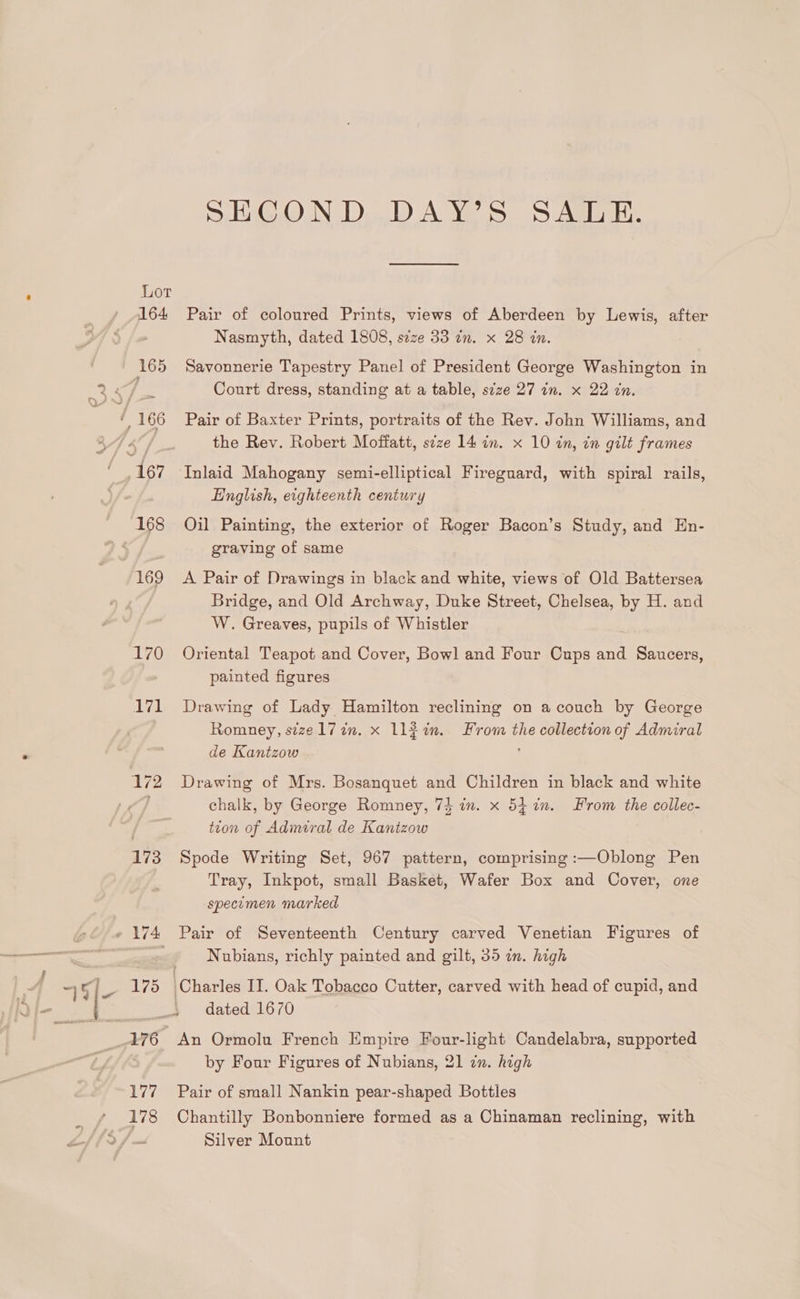 SECOND DAY'S SALE.
Lot
164 Pair of coloured Prints, views of Aberdeen by Lewis, after
Nasmyth, dated 1808, size 33 in. × 28 in.
165 Savonnerie Tapestry Panel of President George Washington in
Court dress, standing at a table, size 27 in. × 22 in.
166 Pair of Baxter Prints, portraits of the Rev. John Williams, and
the Rev. Robert Moffatt, size 14 in. × 10 in, in gilt frames
167 Inlaid Mahogany semi-elliptical Fireguard, with spiral rails,
English, eighteenth century
168 Oil Painting, the exterior of Roger Bacon's Study, and En-
graving of same
169 A Pair of Drawings in black and white, views of Old Battersea
Bridge, and Old Archway, Duke Street, Chelsea, by H. and
W. Greaves, pupils of Whistler
170 Oriental Teapot and Cover, Bowl and Four Cups and Saucers,
painted figures
171 Drawing of Lady Hamilton reclining on a couch by George
Romney, size 17 in. × 11¾ in. From the collection of Admiral
de Kantzow
172 Drawing of Mrs. Bosanquet and Children in black and white
chalk, by George Romney, 7½ in. × 5½ in. From the collec-
tion of Admiral de Kantzow
173 Spode Writing Set, 967 pattern, comprising:—Oblong Pen
Tray, Inkpot, small Basket, Wafer Box and Cover, one
specimen marked
174 Pair of Seventeenth Century carved Venetian Figures of
Nubians, richly painted and gilt, 35 in. high
175 Charles II. Oak Tobacco Cutter, carved with head of cupid, and
dated 1670
176 An Ormolu French Empire Four-light Candelabra, supported
by Four Figures of Nubians, 21 in. high
177 Pair of small Nankin pear-shaped Bottles
178 Chantilly Bonbonniere formed as a Chinaman reclining, with
Silver Mount